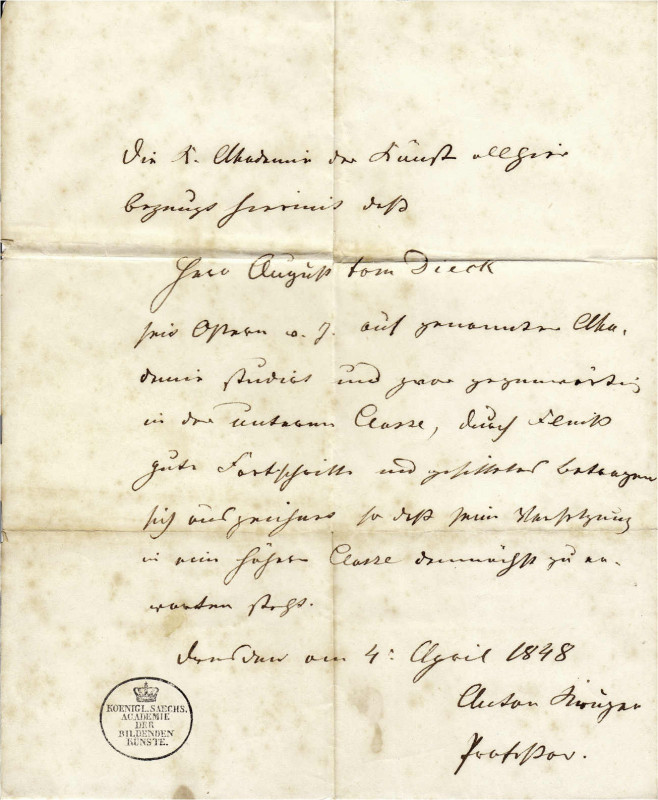 Die K. Akademie der Künste allhier
bezeugt hiermit daß
Herr August tom Dieck
seit Ostern v. J. auf genannter Aka-
demie studirt und zwar gegenwärtig
in der unteren Classe, durch Fleiß
gute Fortschritte und gesittetes Betragen
sich auszeichnet so daß seine Versetzung
in eine höhere Classe demnächst zu er-
warten steht.
Dresden am 4: April 1848
Anton Krüger
Professor.
KOENIGL. SAECHS.
ACADEMIE
DER
BILDENDEN
KÜNSTE.